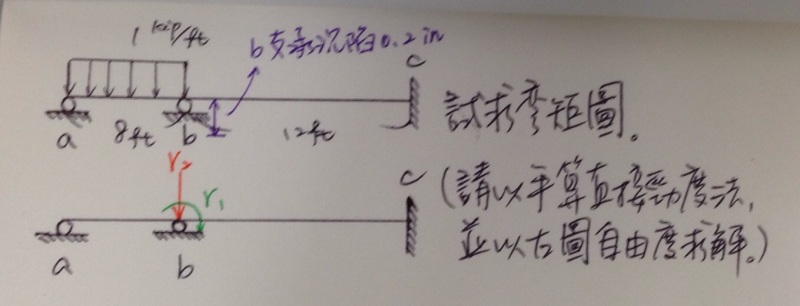 1 kip/ft
b支承沉陷0.2 in
c
a
8ft
b
12ft
試求彎矩圖。
r₂
r₁
c
a
b
(請以手算直接勁度法,
並以左圖自由度求解。)